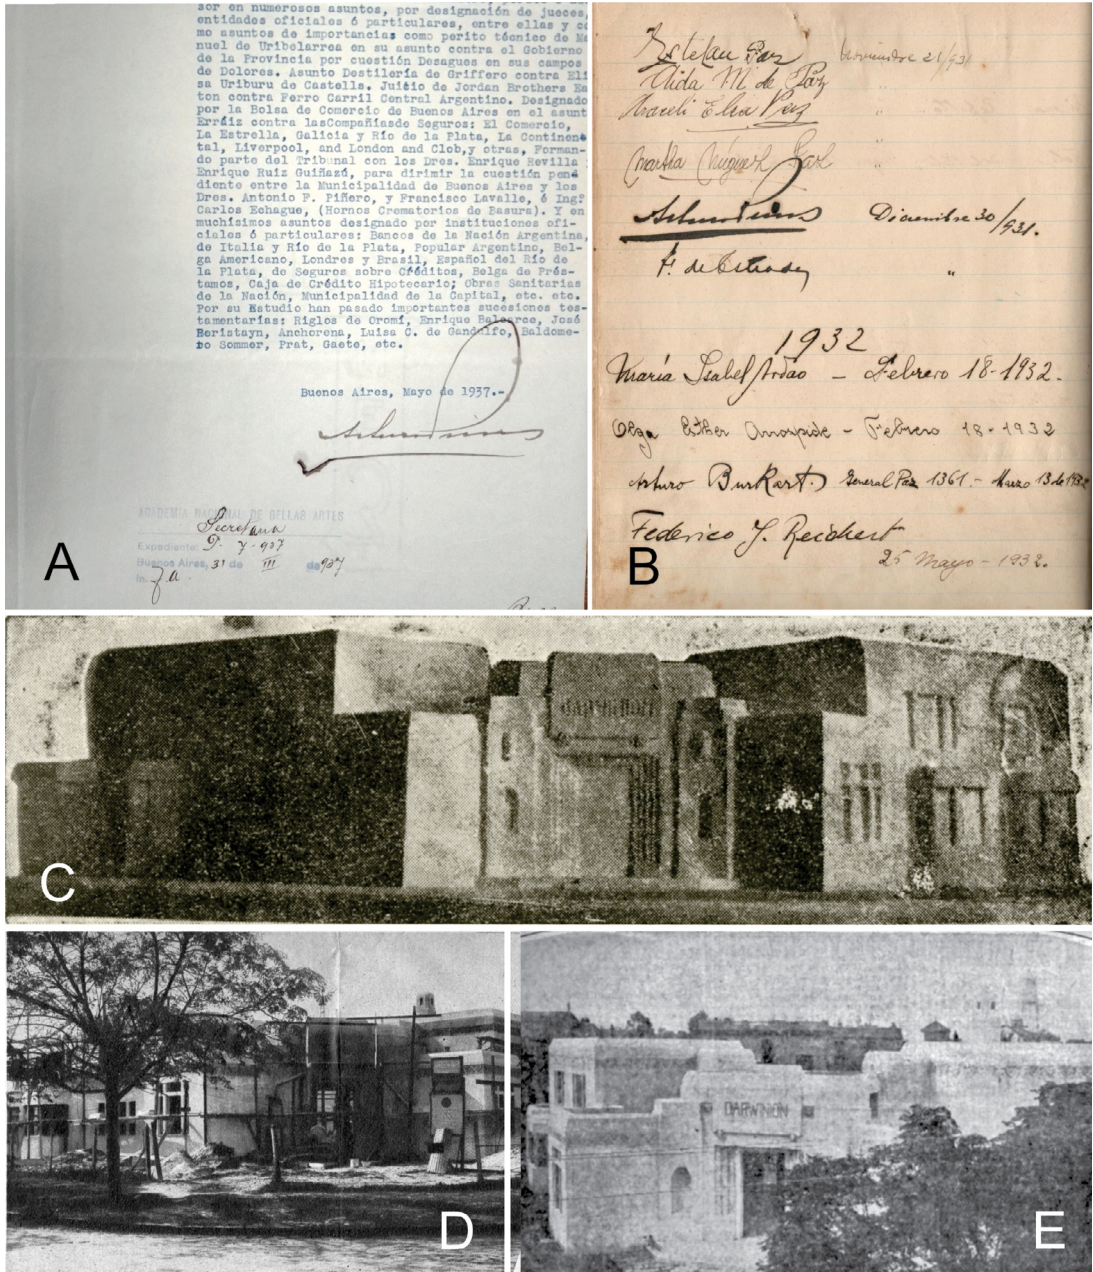 sor en numerosos asuntos, por designación de jueces,
entidades oficiales ó particulares, entre ellas y co
mo asuntos de importancias como perito técnico de Ma
nuel de Uribelarrea en su asunto contra el Gobierno
de la Provincia por cuestión Desagues en sus campos
de Dolores. Asunto Destilería de Griffero contra Eli
sa Uriburu de Castells. Juicio de Jordan Brothers Ea
ton contra Ferro Carril Central Argentino. Designado
por la Bolsa de Comercio de Buenos Aires en el asunt
Erráiz contra lasCompañíasde Seguros: El Comercio,
La Estrella, Galicia y Río de la Plata, La Continen
tal, Liverpool, and London and Cleb,y otras, Forman-
do parte del Tribunal con los Dres. Enrique Revilla
Enrique Ruiz Guiñazú, para dirimir la cuestión pend
diente entre la Municipalidad de Buenos Aires y los
Dres. Antonio F. Piñero, y Francisco Lavalle, é Ingº
Carlos Echague, (Hornos Crematorios de Basura). Y en
muchísimos asuntos designado por instituciones ofi-
ciales ó particulares: Bancos de la Nación Argentina,
de Italia y Río de la Plata, Popular Argentino, Bel-
ga Americano, Londres y Brasil, Español del Río de
la Plata, de Seguros sobre Créditos, Belga de Prés-
tamos, Caja de Crédito Hipotecario; Obras Sanitarias
de la Nación, Municipalidad de la Capital, etc. etc.
Por su Estudio han pasado importantes sucesiones tes-
tamentarias: Riglos de Oromí, Enrique Balcarce, José
Beristayn, Anchorena, Luisa C. de Gandolfo, Baldome-
ro Sommer, Prat, Gaete, etc.
Buenos Aires, Mayo de 1937.-
ACADEMIA NACIONAL DE BELLAS ARTES
Secretaria
Expediente: P- 7-937
Buenos Aires, 31 de III de 937
A
Estefan Paz Noviembre 21/931
Aida M. de Paz "
Araceli Elsa Paz "
Martha Miguez Paz "
Diciembre 30/931.
F. de Estrada "
1932
María Isabel Ardao - Febrero 18-1932.
Olga Esther - Febrero 18-1932
Arturo Burkart. General Paz 1361.- Marzo 13 de 1932
Federico J. Reichert
25 Mayo - 1932.
B
DARWINION
C
D
DARWINION
E